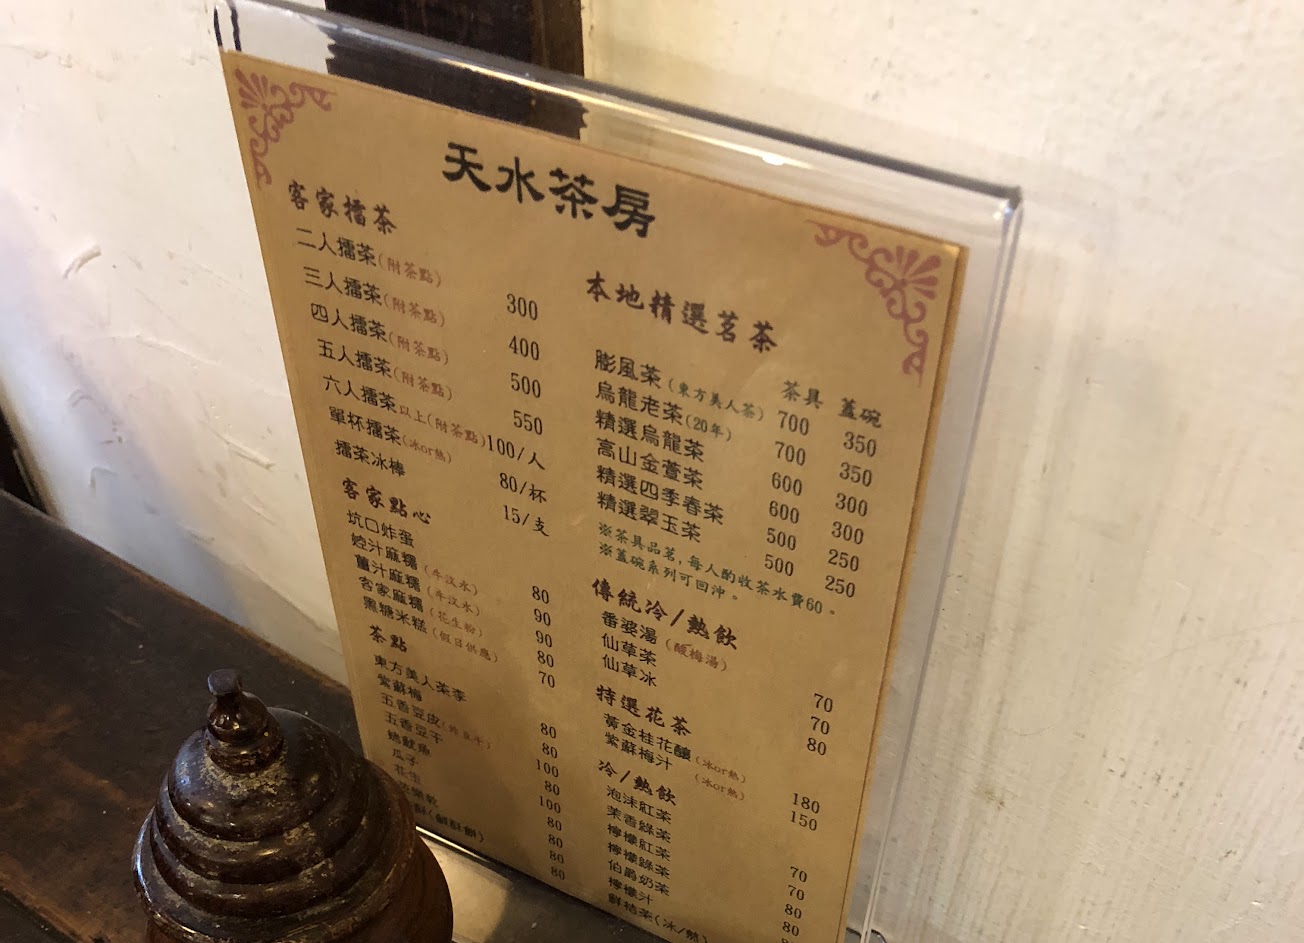 天水茶房
客家擂茶
二人擂茶(附茶點) 300
三人擂茶(附茶點) 400
四人擂茶(附茶點) 500
五人擂茶(附茶點) 550
六人擂茶以上(附茶點) 100/人
單杯擂茶(冰or熱) 80/杯
擂茶冰棒 15/支
客家點心
坑口炸蛋 80
焢汁麻糬(牛汶水) 90
薑汁麻糬(牛汶水) 90
客家麻糬(花生粉) 80
黑糖米糕(假日供應) 70
茶點
東方美人茶李 80
紫蘇梅 80
五香豆皮 100
五香豆干 80
魷魚 100
瓜子 80
花生 80
80
80
本地精選茗茶
茶具 蓋碗
膨風茶(東方美人茶) 700 350
烏龍老茶(20年) 700 350
精選烏龍茶 600 300
高山金萱茶 600 300
精選四季春茶 500 250
精選翠玉茶 500 250
※茶具品茗,每人酌收茶水費60。
※蓋碗系列可回沖。
傳統冷/熱飲
番婆湯(酸梅湯) 70
仙草茶 70
仙草冰 80
特選花茶
黃金桂花釀(冰or熱) 180
紫蘇梅汁(冰or熱) 150
冷/熱飲
泡沫紅茶 70
茉香綠茶 70
檸檬紅茶 80
檸檬綠茶 80
伯爵奶茶
檸檬汁
鮮桔茶(冰/熱)